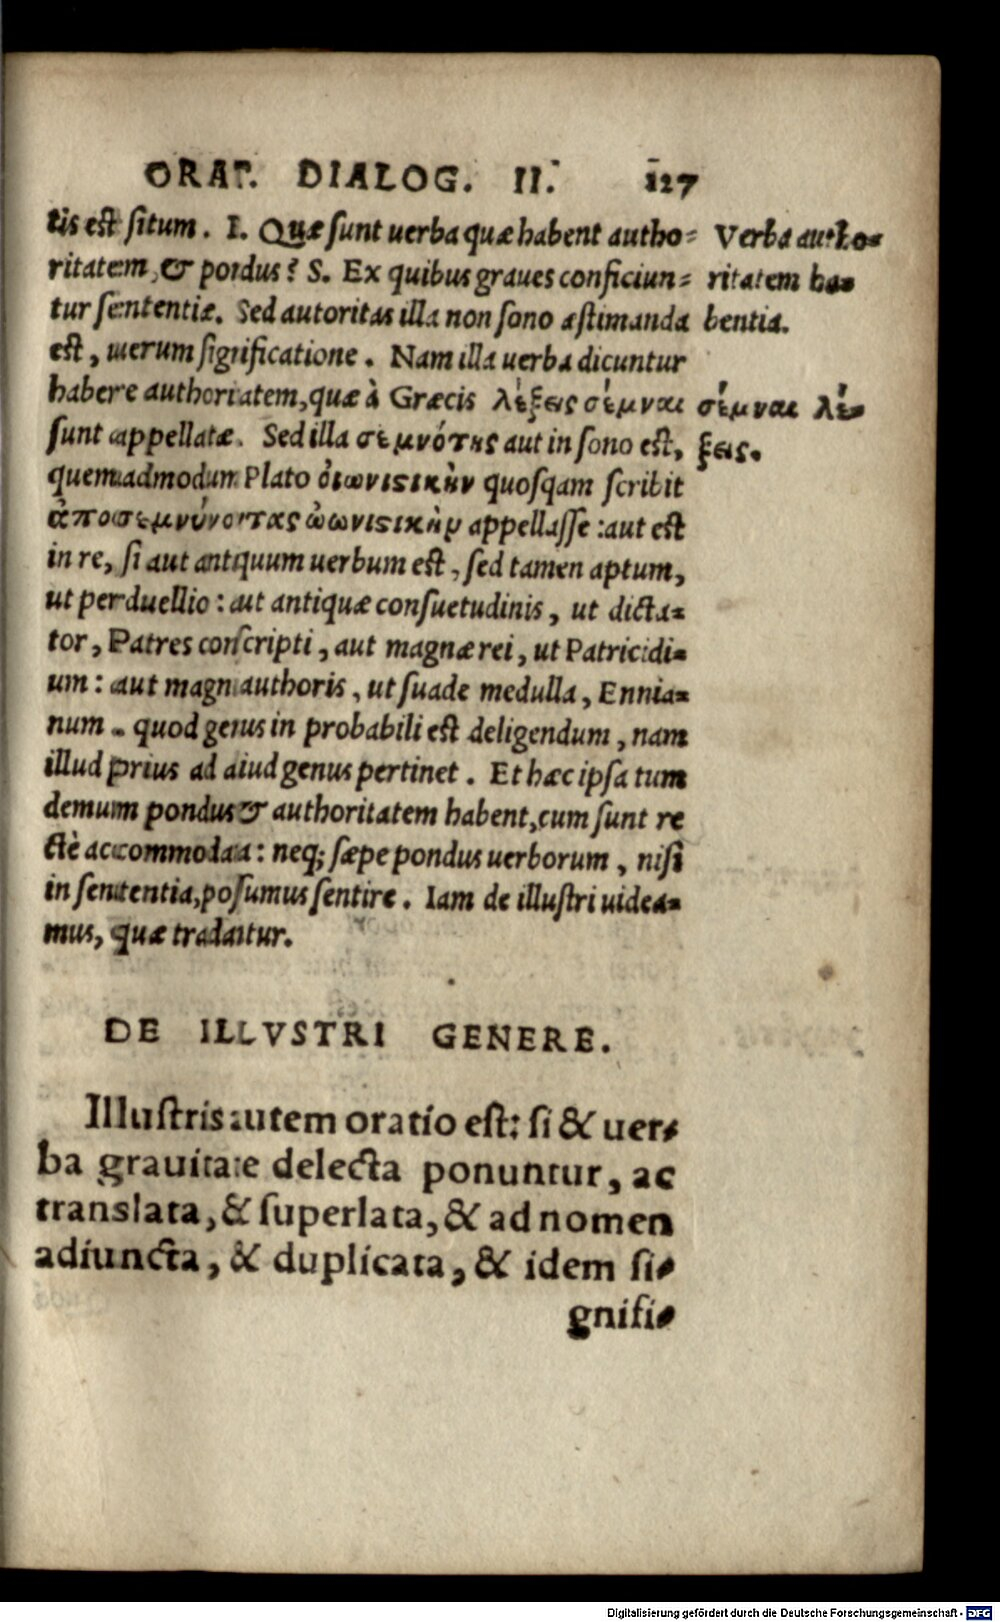 ORAT. DIALOG. II. 127
tis est situm. I. Quæ sunt uerba quæ habent autho=
ritatem, & pondus? S. Ex quibus graues conficiun=
tur sententiæ. Sed autoritas illa non sono æstimanda
est, uerum significatione. Nam illa uerba dicuntur
habere authoritatem, quæ à Græcis λέξεις σέμναι
sunt appellatæ. Sed illa σεμνότης aut in sono est,
quemadmodum Plato ὀιωνιϛικὴν quosqam scribit
ἀποσεμνύνοντας ὠωνιϛικὴν appellasse: aut est
in re, si aut antiquum uerbum est, sed tamen aptum,
ut perduellio: aut antiquæ consuetudinis, ut dicta=
tor, Patres conscripti, aut magnæ rei, ut Patricidi=
um: aut magni authoris, ut suade medulla, Ennia=
num. quod genus in probabili est deligendum, nam
illud prius ad aliud genus pertinet. Et hæc ipsa tum
demum pondus & authoritatem habent, cum sunt re
ctè accommodata: neq; sæpe pondus uerborum, nisi
in sententia, possumus sentire. Iam de illustri uidea=
mus, quæ tradantur.
Verba autho=
ritatem ha=
bentia.
σέμναι λέ=
ξεις.
DE ILLVSTRI GENERE.
Illustris autem oratio est: si & uer=
ba grauitate delecta ponuntur, ac
translata, & superlata, & ad nomen
adiuncta, & duplicata, & idem si=
gnifi=
Digitalisierung gefördert durch die Deutsche Forschungsgemeinschaft - DFG